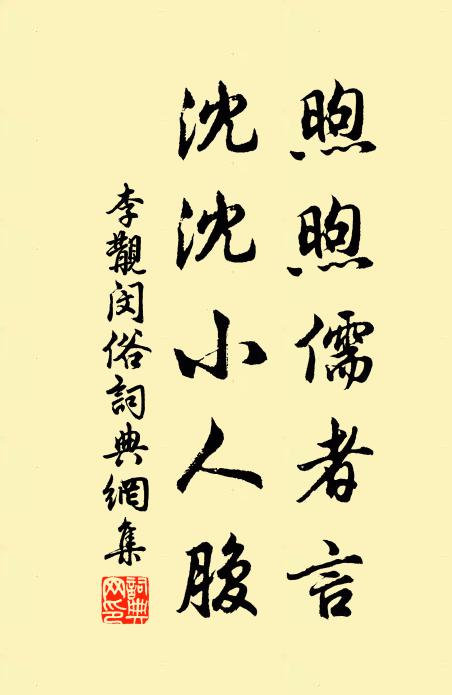 煦煦儒者言
沈沈小人腹
李覯閔俗詞典網集
詞典網印